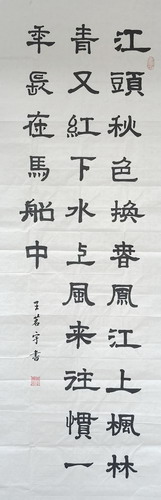 江頭秋色換春風江上楓林
青又紅下水上風來往慣一
年長在馬船中
王茗宇書